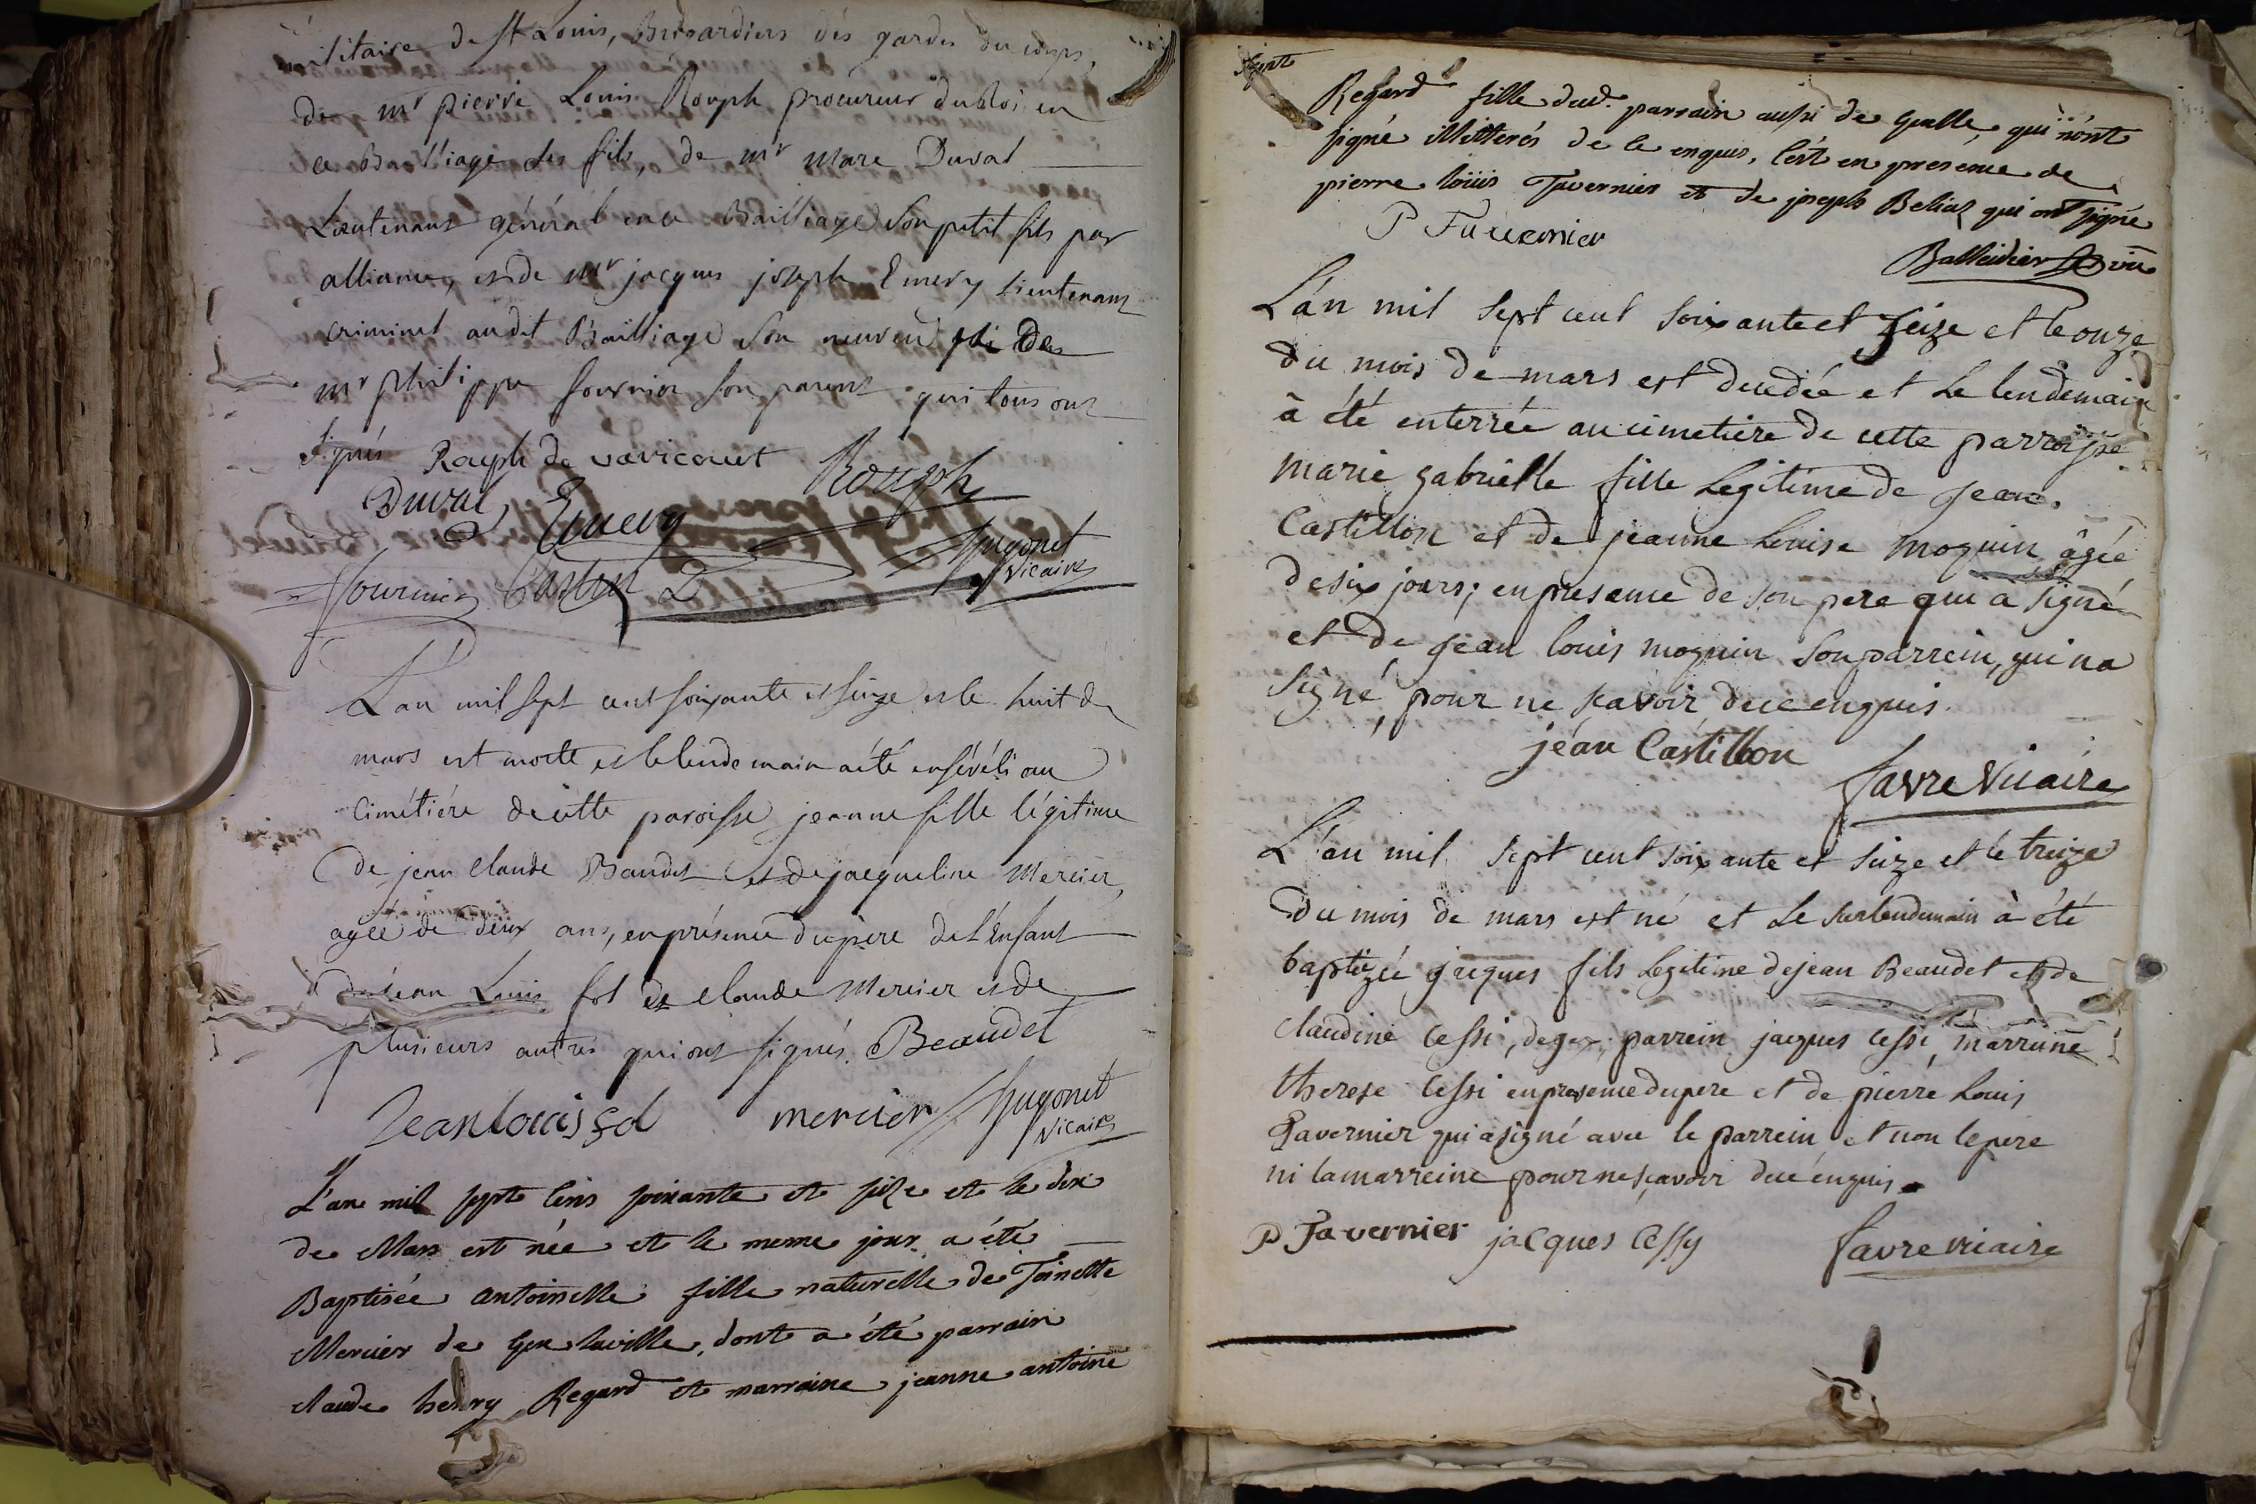 militaire de St Louis, Brigardiers dés gardes du corps,
de mr pierre Louis Rouph procureur du Roi en
ce Bailliage ses fils, de mr marc Duval
Lieutenant général en ce Bailliage son petit fils par
alliance, et de mr jacques joseph Emery Lieutenant
criminel audit Bailliage son neuveu et de
mr philippe fournier son parent qui tous ont
signés Rouph de varicourt Rouph
Duval Emery
fournier Castin Hugonet
Vicaire
L'an mil sept cent soixante et seize et le huit de
mars est morte et le lendemain a été enséveli au
Cimétiére de cette paroisse jeanne fille légitime
de jean Claude Baudet et de jacqueline Mercier,
agée de deux ans, en présence du pere de l'Enfant
de jean Louis fol de Claude Mercier et de
plusieurs autres qui ont signés. Beaudet
Jean louis fol mercier Hugonet
Vicaire
L'an mil sept cens soixante et seize et le dix
de Mars est née et le meme jour a été
Baptisée antoinette fille naturelle de Toinette
Mercier de Gex la ville, dont a été parrain
claude henry Regard et marraine jeanne antoine
Regard fille dud. parrain aussi de qui n'ont
signé illitterés de ce enquis, c'est en presence de
pierre loüis Tavernier et de joseph Beliaz qui ont signé
P Tavernier Balleidier
L'an mil sept cent soixante et seize et le onze
du mois de mars est decedée et le lendemain
à été enterrée au cimetiere de cette parroisse
marie gabrielle fille legitime de jean
Castillon et de jeanne Louise moquin âgée
de six jours; en presence de son pere qui a signé
et de jean louis moquin son parrein, qui n'a
signé, pour ne scavoir de ce enquis.
jéan Castillon
favre Vicaire
L'an mil sept cent soixante et seize et le treize
du mois de mars est né et le surlendemain à été
baptizée jacques fils legitime de jean Beaudet et de
claudine Cessi, de gex, parrein jacques Cessi, marreine
therese Cessi en presence du pere et de pierre Louis
Tavernier qui a signé avec le parrein, et non le pere
ni la marreine pour ne sçavoir de ce énquis.
P Tavernier jacques Cessy favre vicaire